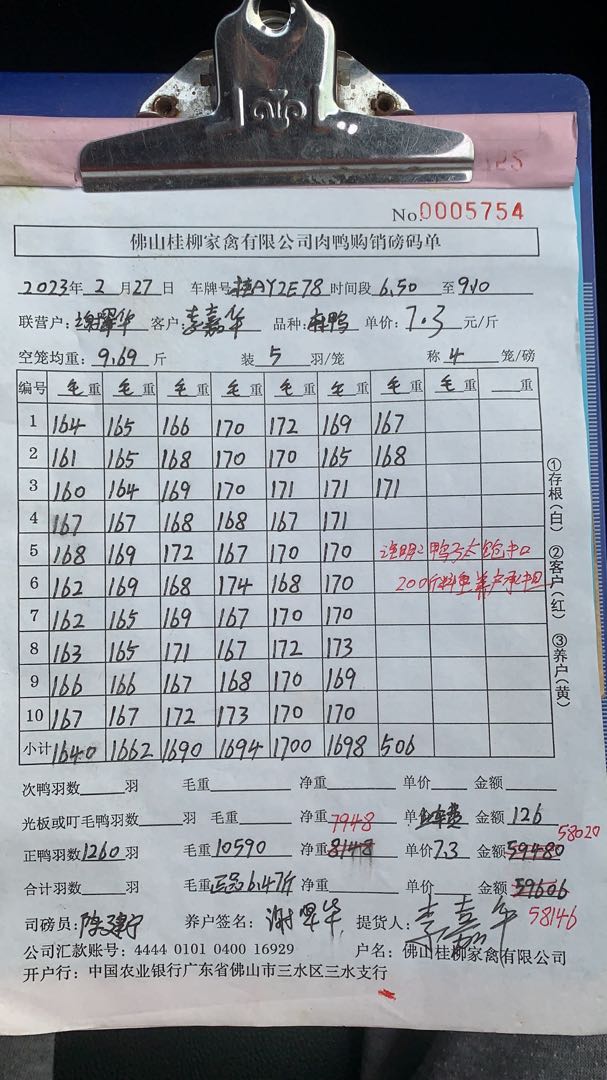 125
No.0005754
佛山桂柳家禽有限公司肉鸭购销磅码单
2023年 2 月27日 车牌号 桂AY2E78 时间段 6.50 至 9.10
联营户: 谢翠华 客户: 李嘉华 品种: 麻鸭 单价: 7.3 元/斤
空笼均重: 9.69 斤 装 5 羽/笼 称 4 笼/磅
编号 毛重 毛重 毛重 毛重 毛重 毛重 毛重 毛重 重
1 164 165 166 170 172 169 167
2 161 165 168 170 170 165 168
3 160 164 169 170 171 171 171
4 167 167 168 168 167 171
5 168 169 172 167 170 170 注明:鸭
6 162 169 168 174 168 170 200斤 养户承担
7 162 165 169 167 170 170
8 163 165 171 167 172 173
9 166 166 167 168 170 169
10 167 167 172 173 170 170
小计 1640 1662 1690 1694 1700 1698 506
①存根(白) ②客户(红) ③养户(黄)
次鸭羽数 羽 毛重 净重 单价 金额
光板或叮毛鸭羽数 羽 毛重 净重 单 金额 126
7948 58020
正鸭羽数1260羽 毛重10590 净重8148 单价7.3 金额59480
合计羽数 羽 毛重 正品6.47斤 净重 单价 金额59606
58146
司磅员: 养户签名: 谢翠华 提货人: 李嘉华
公司汇款账号: 4444 0101 0400 16929 户名: 佛山桂柳家禽有限公司
开户行: 中国农业银行广东省佛山市三水区三水支行